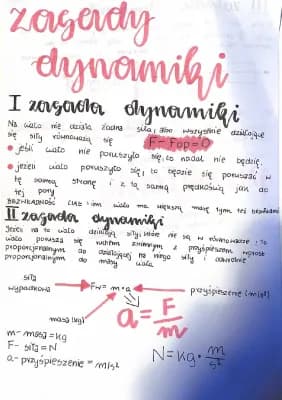 zasady
dynamiki
I zasada dynamiki
Na ciało nie działa żadna siła, albo wszystkie działające
się siły równoważą się F-Fop=0
• jeśli ciało nie poruszyło się, to nadal nie będzie.
• jeżeli ciało poruszyło się, to będzie się poruszać w
tę samą stronę i z tą samą prędkością jak do
tej pory
BEZWŁADNOŚĆ CIAŁ - im ciało ma większą masę tym jest
II zasada dynamiki
Jeżeli na to ciało działają siły, które nie są w równowadze, to
ciało porusza się ruchem zmiennym z przyśpieszeniem wprost
proporcjonalnym do działającej na niego siły i odwrotnie
proporcjonalnym do masy ciała
siła
wypadkowa Fw = m·a przyśpieszenie (m/s²)
masa (kg)
a = F/m
m- masa = kg
F- siła = N
a- przyśpieszenie = m/s²
N = kg · m/s²